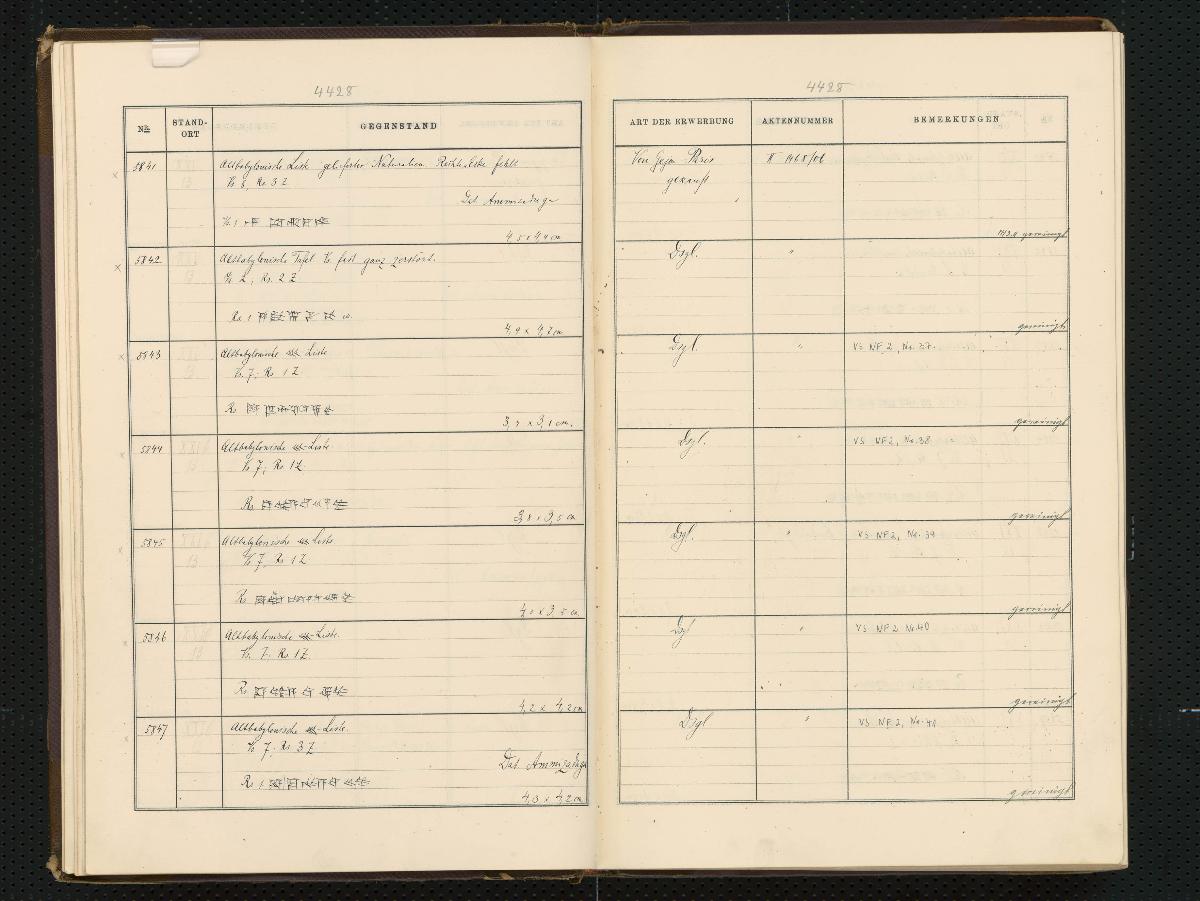 4428
No.
STAND-
ORT
GEGENSTAND
5841
Altbabylonische Liste gelieferter Naturalien. Rechte Ecke fehlt
Vs 3, Rs 3 Z
Dat. Ammizaduga
Vs 1
4,5 x 4,4 cm
5842
Altbabylonische Tafel Vs. fast ganz zerstört.
Vs 2, Rs. 2 Z
Rs 1
4,9 x 4,7 cm
5843
Altbabylonische Liste
Vs. 7; Rs 1 Z
Rs
3,7 x 3,1 cm.
5844
Altbabylonische Liste
Vs 7; Rs 1 Z.
Rs
3,8 x 3,5 cm
5845
Altbabylonische Liste
Vs 7, Rs 1 Z
Rs
4,0 x 3,5 cm
5846
Altbabylonische Liste.
Vs. 7. Rs 1 Z.
Rs
4,2 x 4,2 cm
5847
Altbabylonische Liste.
Vs 7, Rs 3 Z
Dat. Ammizaduga
Rs 1
4,3 x 4,2 cm
4428
ART DER ERWERBUNG
AKTENNUMMER
BEMERKUNGEN
Von
gekauft
gereinigt
Dsgl.
"
gereinigt
Dsgl.
"
VS NF 2, Nr. 37.
gereinigt
Dsgl.
"
VS NF 2, Nr. 38
gereinigt
Dsgl.
"
VS NF 2, Nr. 39
gereinigt
Dsgl
"
VS NF 2 Nr. 40
gereinigt
Dsgl
"
VS NF 2, Nr. 41
gereinigt